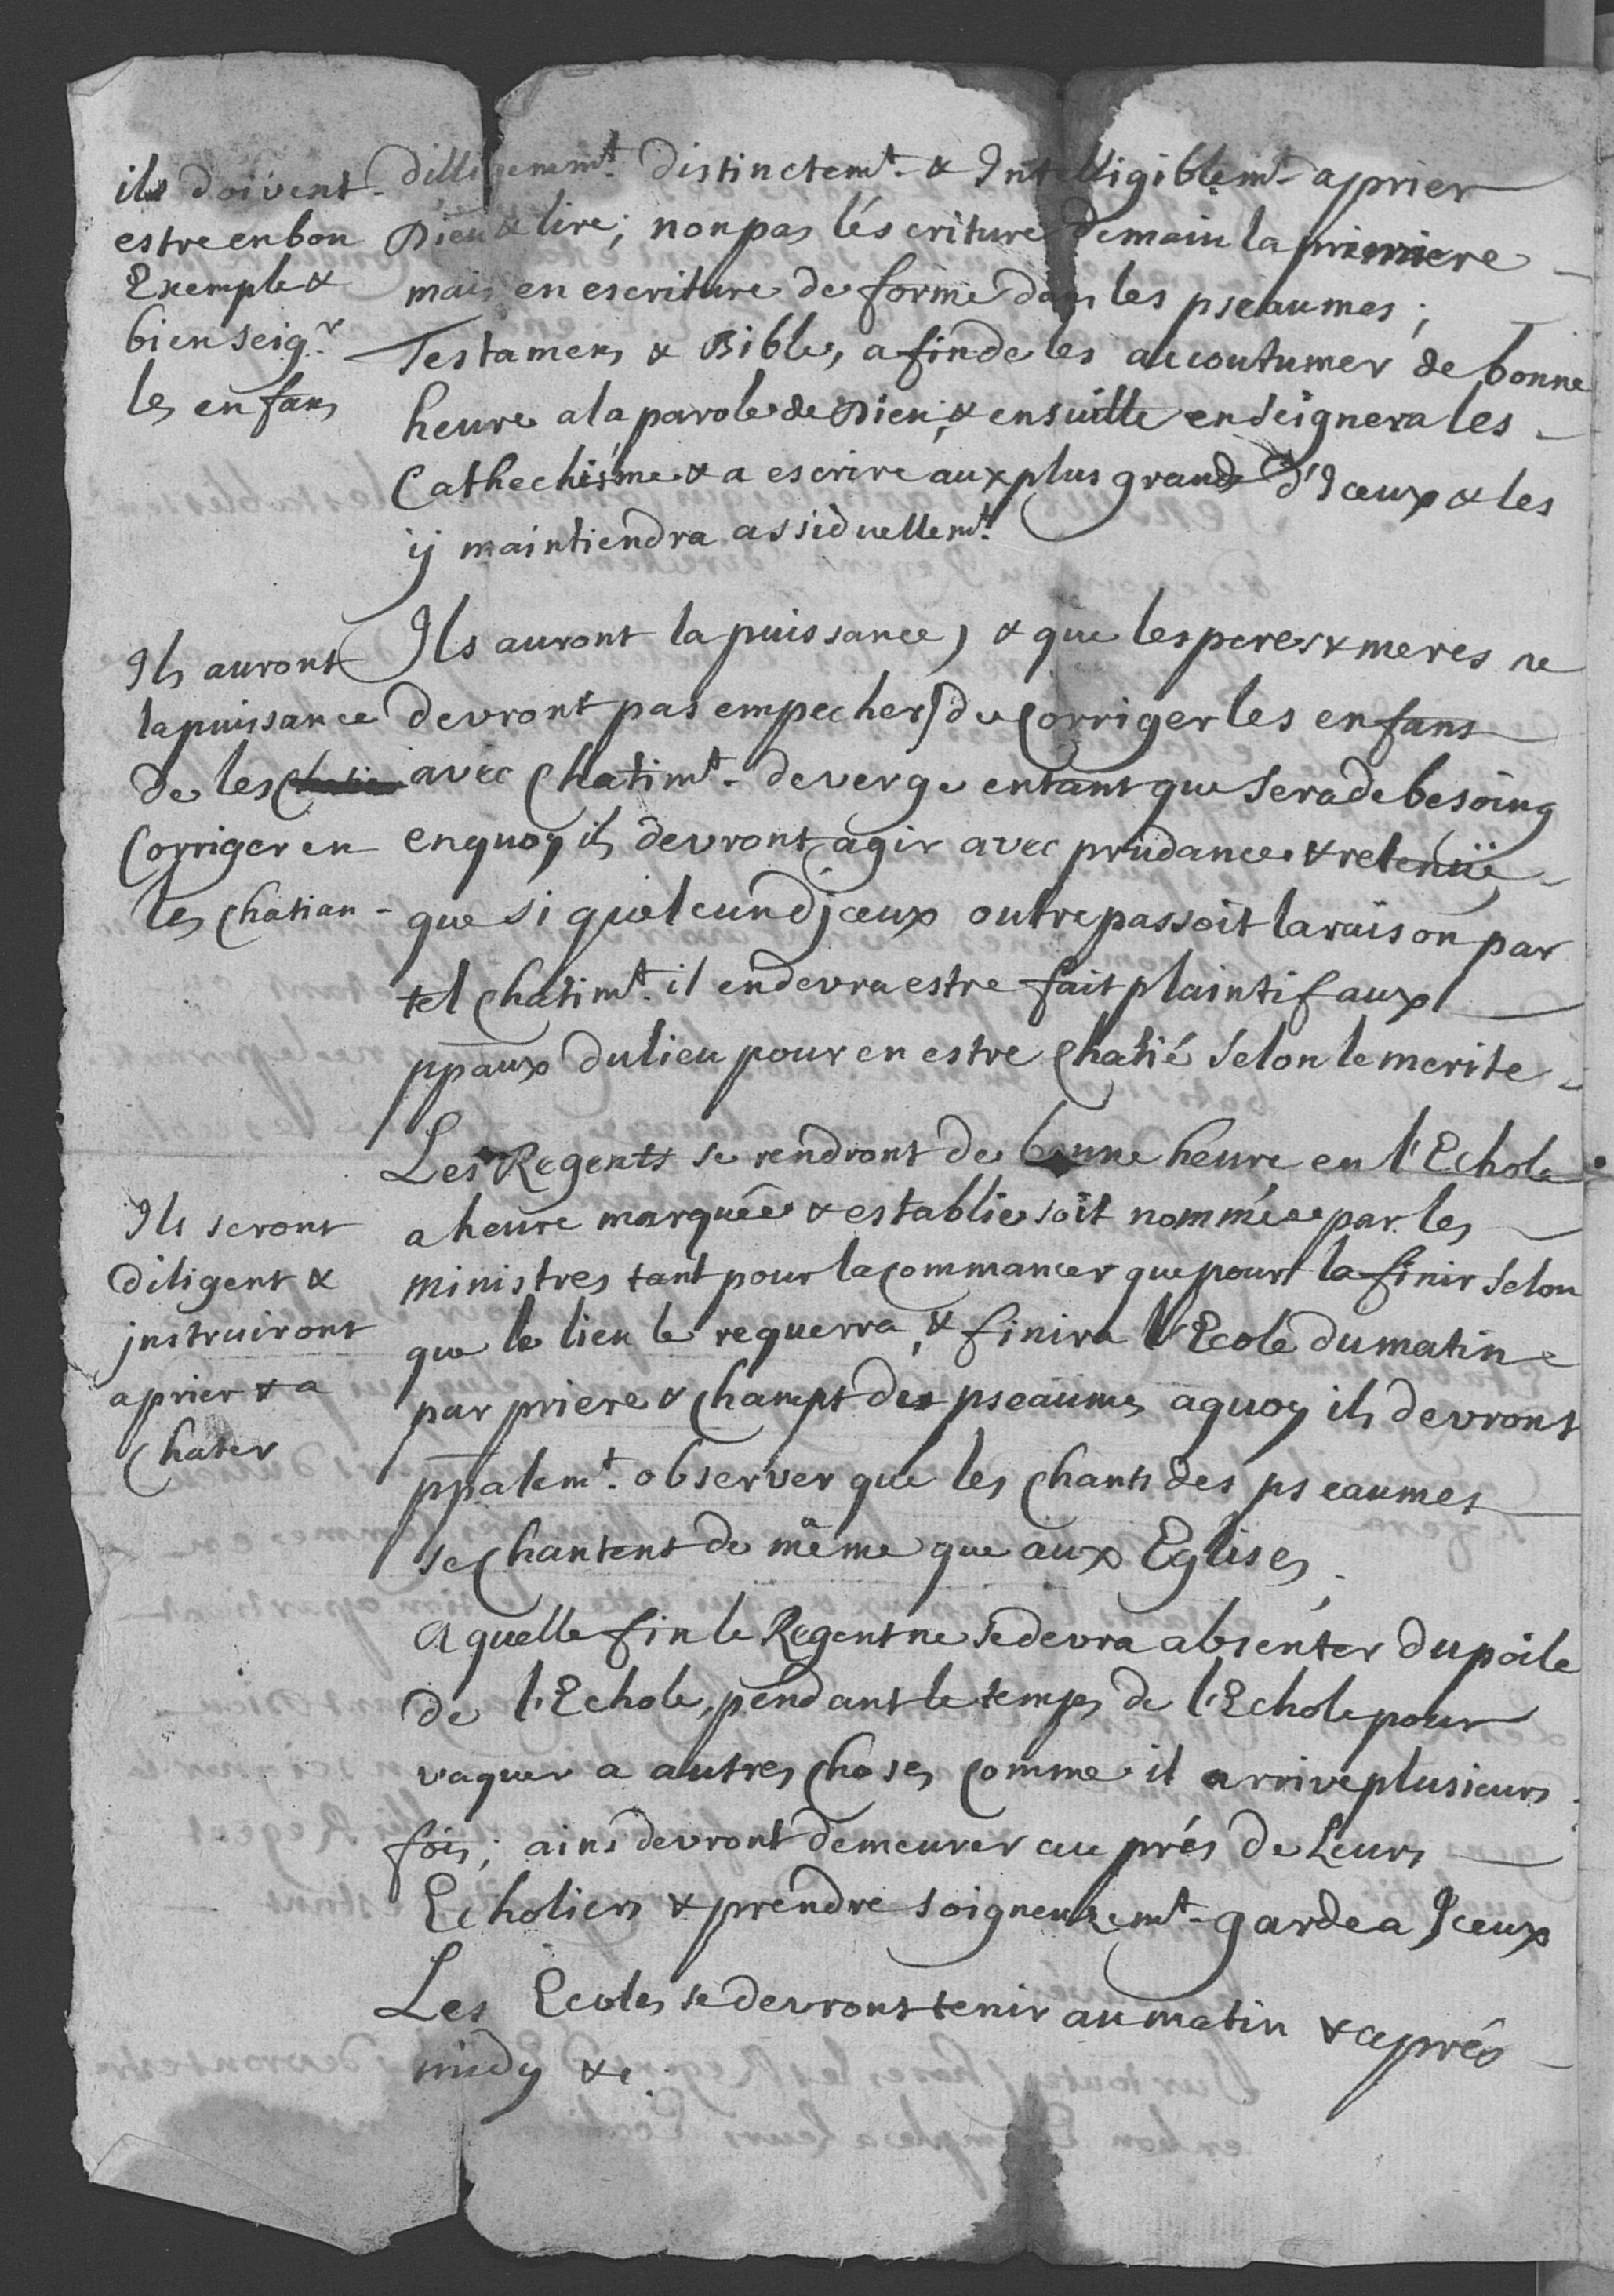 ils doivent
estre en bon
Exemple &
bien seigr
les enfans
dilligemmt. distinctemt. & Intelligiblemt. a prier
Dieu & lire; non pas l'éscriture de main la primiere
mais en escriture de forme dans les pseaumes;
Testamens & Bible, afin de les accoutumer de bonne
heure a la parole de Dieu, & ensuitte enseignera les
Cathechisme & a escrire aux plus grands d'Iceux & les
ÿ maintiendra assiduellemt.
Ils auront
la puissance
de les chatier
Corriger en
les chatian
Ils auront la puissance, & que les peres & meres ne
devront pas empecher) de Corriger les enfans
avec Chatimt. de verge entant que sera de besoing
enquoy ils devront agir avec prudance & retenüe
que si quelcun djceux outrepassoit la raison par
tel Chatimt. il en devra estre fait plaintif aux
ppaux du lieu pour en estre Chatié selon le merite
Ils seront
diligent &
jnstruiront
a prier & a
Chater
Les Regents se rendront de bonne heure en l'Echole
a heure marquée & establie soit nommée par les
ministres tant pour la commancer que pour la finir selon
que le lieu le requerra, & finira l'Ecole du matin
par priere & Champt des pseaumes a quoy ils devront
ppalemt. observer que les Chants des pseaumes
se Chantent de même que aux Eglises,
A quelle fin le Regent ne se devra absenter du poile
de l'Echole, pendant le temps de l'Echole pour
vaquer a autres Choses Comme il arrive plusieurs
fois; ains devront demeurer au prés de Leurs
Echoliers & prendre soigneuzemt. garde a Iceux
Les Ecoles se devront tenir au matin & aprés
midy &c.